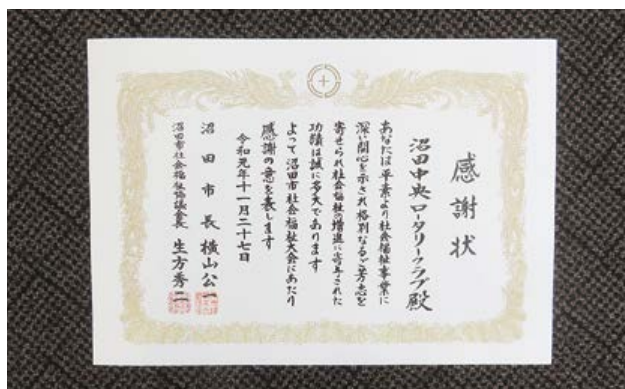 感謝状
沼田中央ロータリークラブ殿
あなたは平素より社会福祉事業に
深い関心を示され格別なるご芳志を
寄せられ社会福祉の増進に寄与された
功績は誠に多大であります
よって沼田市社会福祉大会にあたり
感謝の意を表します
令和元年十一月二十七日
沼田市長 横山公一
沼田市社会福祉協議会長 生方秀二